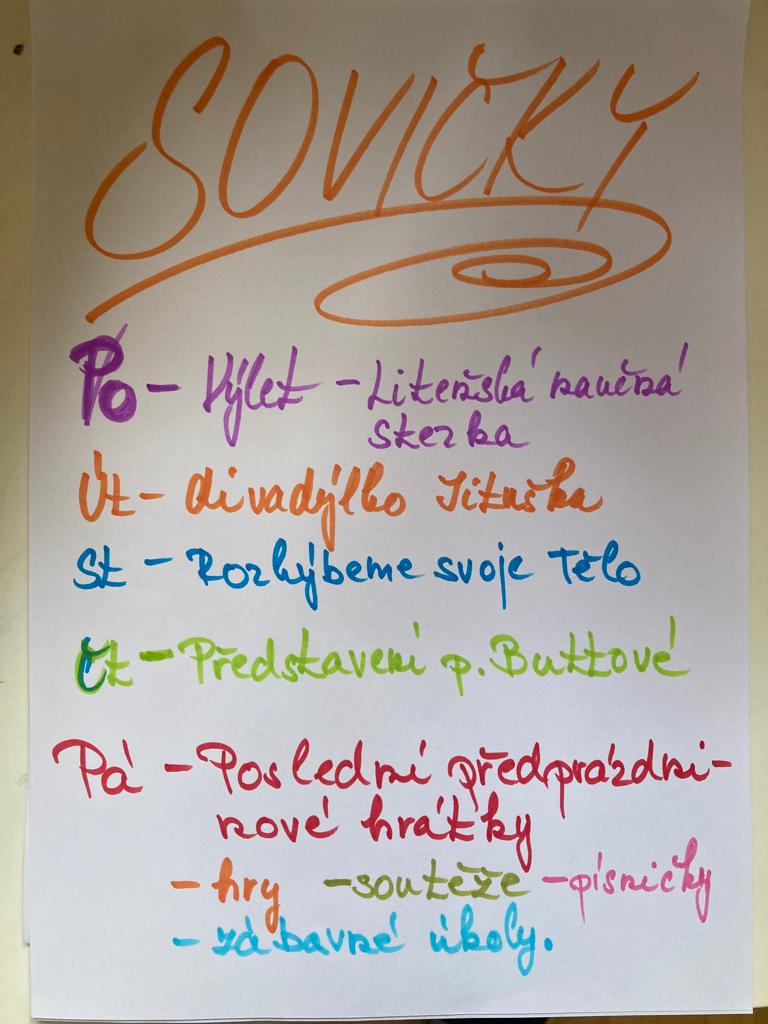 SOVIČKY
Po - Výlet - Liteňská naučná
stezka
Út - divadýlko Jituška
St - Rozhýbeme svoje tělo
Čt - Představení p. Buttové
Pá - Poslední předprázdni-
nové hrátky
- hry - soutěže - písničky
- zábavné úkoly.